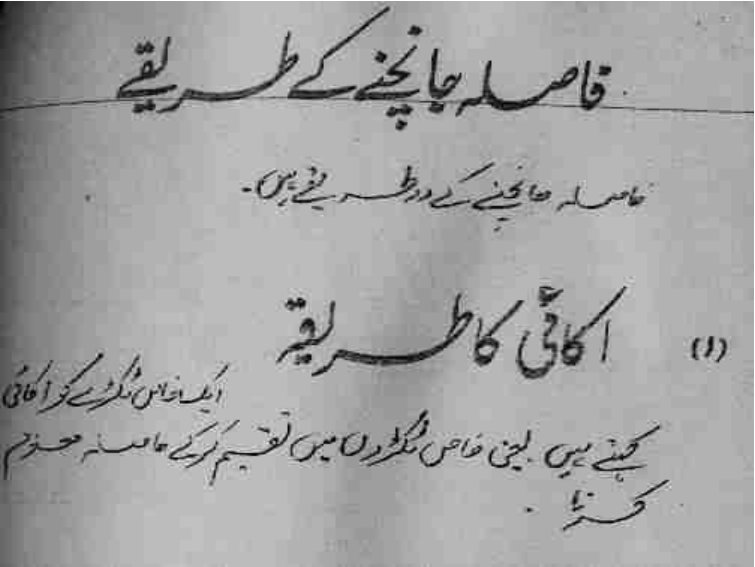 فاصلہ جانچنے کے طریقے
فاصلہ جانچنے کے دو طریقے ہیں۔
(۱) اکائی کا طریقہ
ایک خاص ٹکڑے کو اکائی
کہتے ہیں یعنی خاص ٹکڑوں میں تقسیم کرکے فاصلہ معلوم
کرنا۔